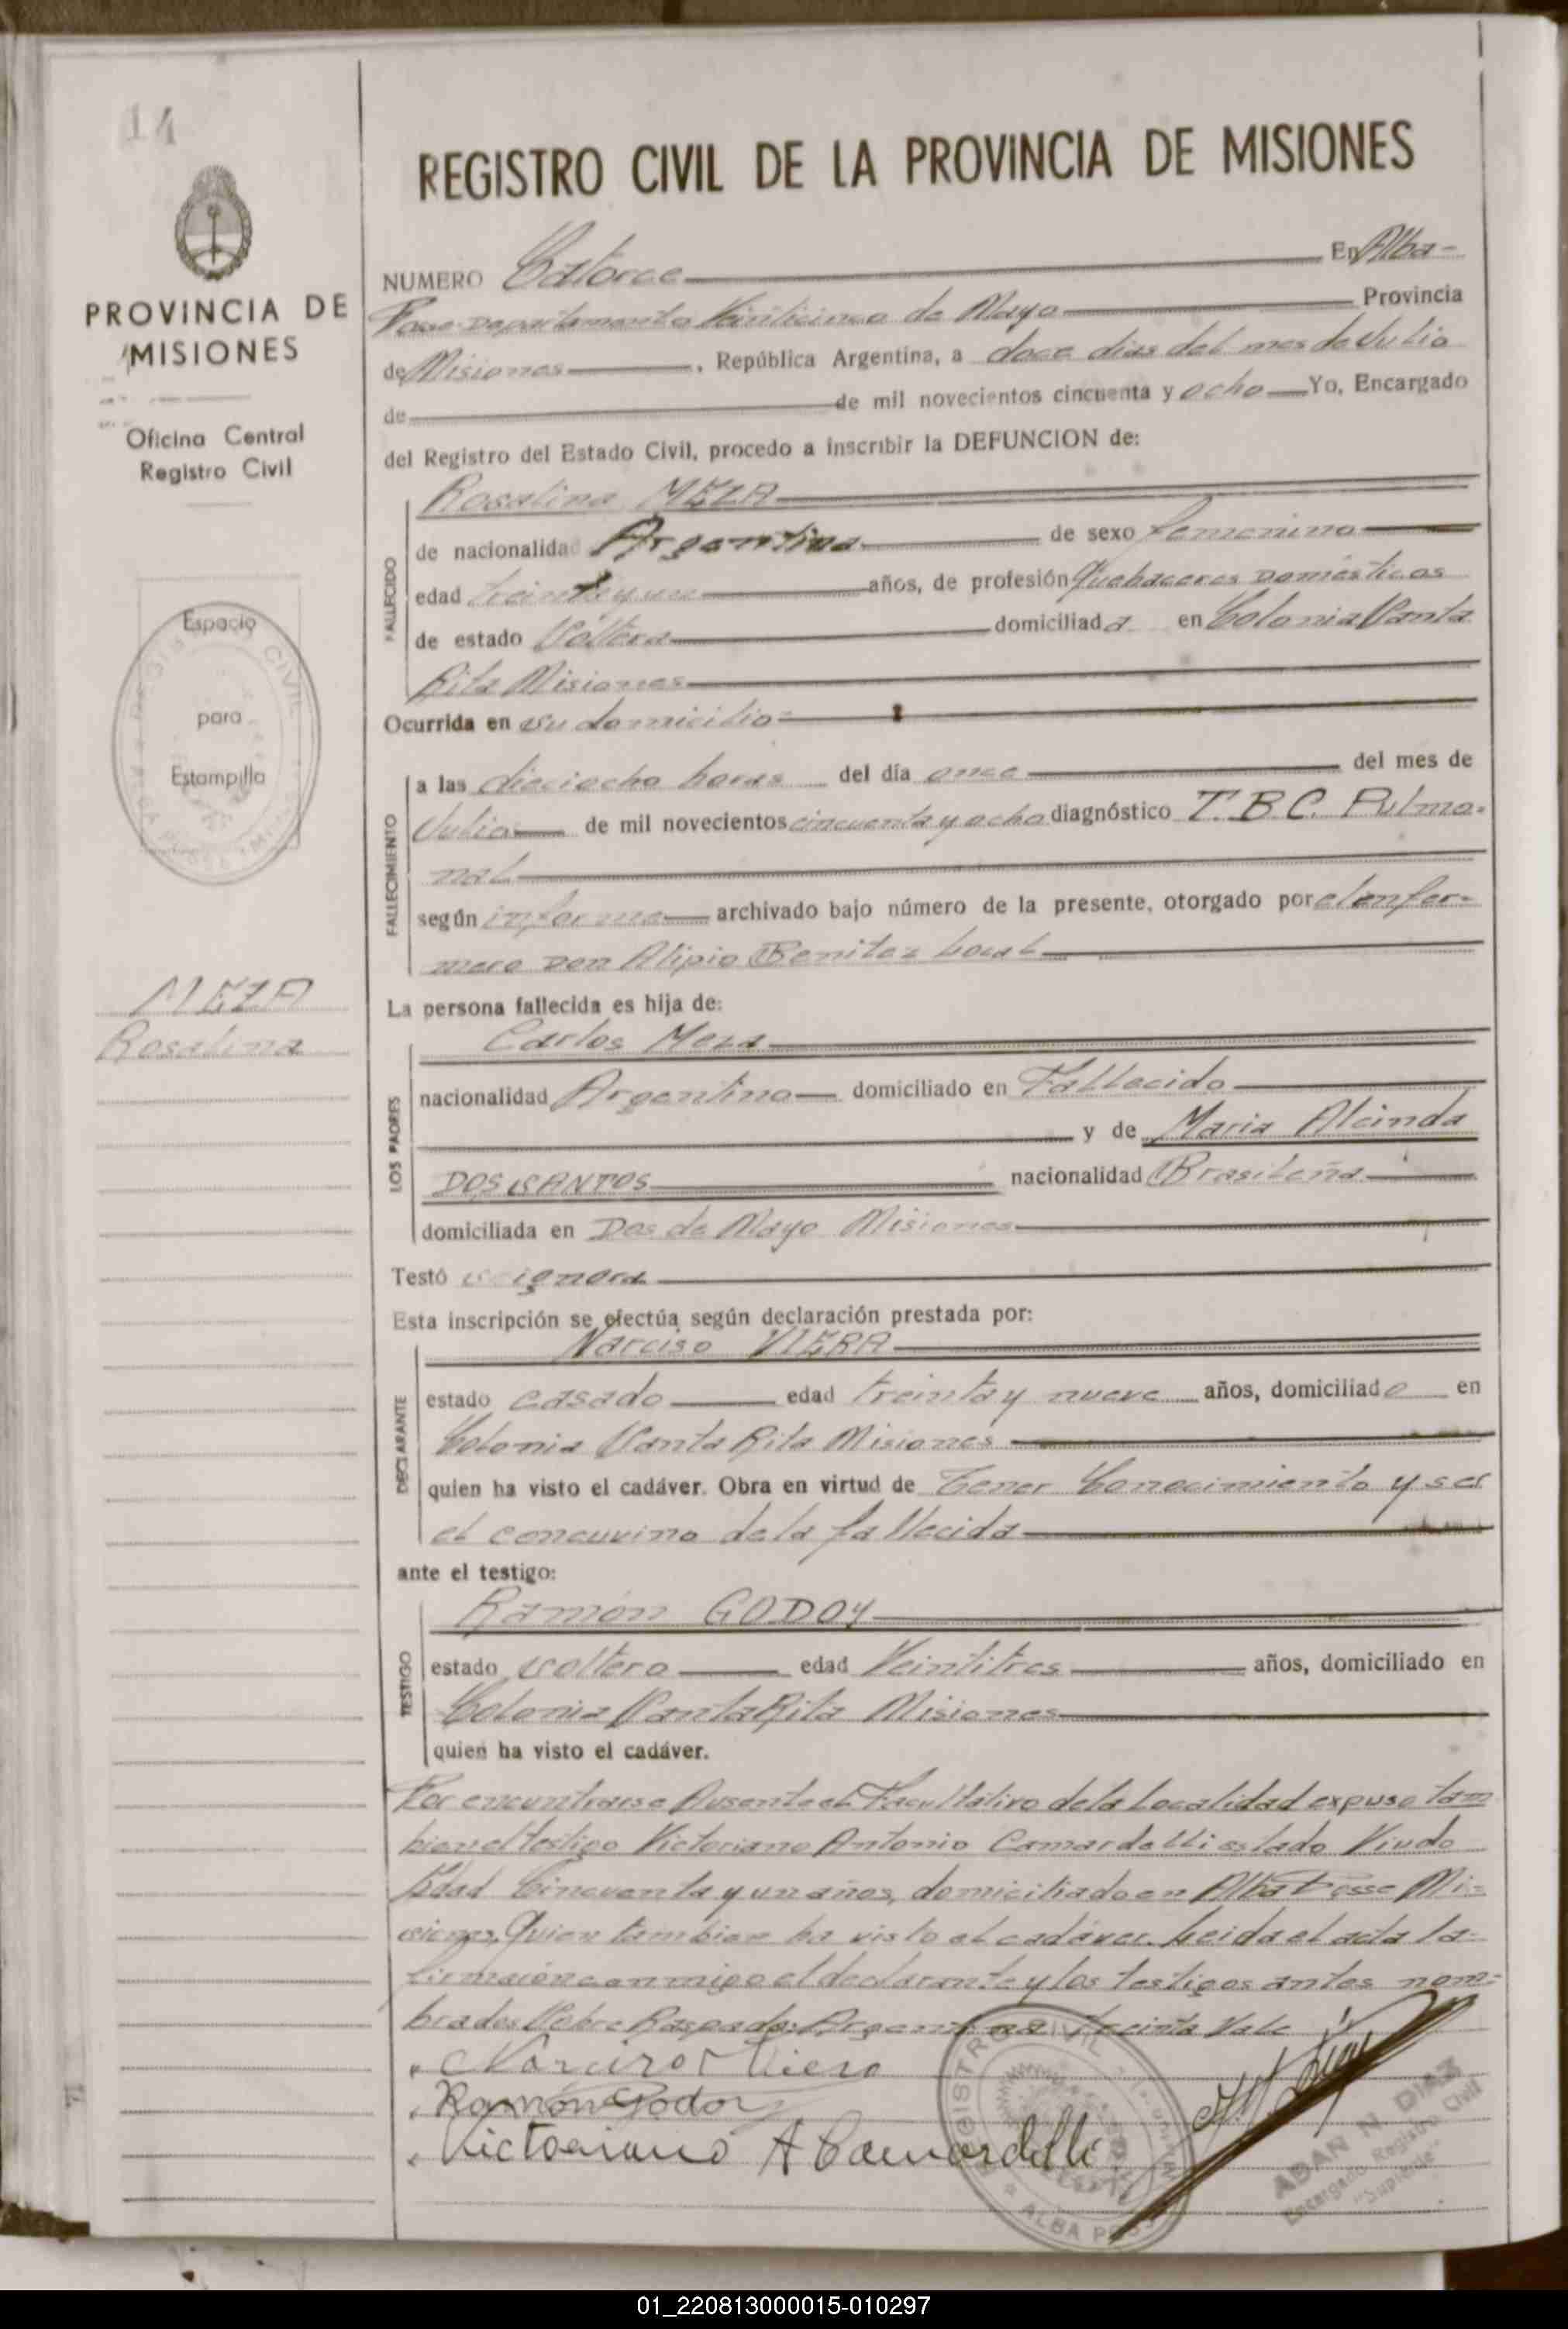 14
PROVINCIA DE
MISIONES
Oficina Central
Registro Civil
Espacio
para
Estampilla
MEZA
Rosalina
REGISTRO CIVIL DE LA PROVINCIA DE MISIONES
NUMERO Catorce En Alba-
Posse Departamento Veinticinco de Mayo Provincia
de Misiones, República Argentina, a doce dias del mes de Julio
de de mil novecientos cincuenta y ocho Yo, Encargado
del Registro del Estado Civil, procedo a inscribir la DEFUNCION de:
FALLECIDO
Rosalina MEZA
de nacionalidad Argentina de sexo femenino
edad treinta y un años, de profesión Quehaceres Domésticos
de estado Sóltera domiciliada en Colonia Santa
Rita Misiones
Ocurrida en su domicilio=
FALLECIMIENTO
a las dieciocho horas del día once del mes de
Julio de mil novecientos cincuenta y ocho diagnóstico T.B.C. Pulmo=
nal
según informe archivado bajo número de la presente, otorgado por el enfer=
mero Don Alipio Benitez local
La persona fallecida es hija de:
LOS PADRES
Carlos Meza
nacionalidad Argentino domiciliado en Fallecido
y de Maria Alcinda
DOS SANTOS nacionalidad Brasileña
domiciliada en Dos de Mayo Misiones
Testó se ignora
Esta inscripción se efectúa según declaración prestada por:
DECLARANTE
Narciso VIERA
estado casado edad treinta y nueve años, domiciliado en
Colonia Santa Rita Misiones
quien ha visto el cadáver. Obra en virtud de Tener Conocimiento y ser
el concuvino de la fallecida
ante el testigo:
TESTIGO
Ramón GODOY
estado soltero edad Veintitres años, domiciliado en
Colonia Santa Rita Misiones
quien ha visto el cadáver.
Por encontrarse Ausente el Facultativo de la Localidad expuso tam
bien el testigo Victoriano Antonio Camardelli estado Viudo
Edad Cincuenta y un años, domiciliado en Alba Posse Mi=
siones, Quien tambien ha visto el cadáver. Leida el acta la=
firmaron conmigo el declarante y los testigos antes nom=
brados Sobre Raspado: Argentina Treinta Vale
Narciso Viera
Ramón Godoy
Victoriano A Camardelli
REGISTRO CIVIL
ALBA POSSE
ADAN N. DIAZ
Encargado Registro Civil
"Suplente"
01_220813000015-010297